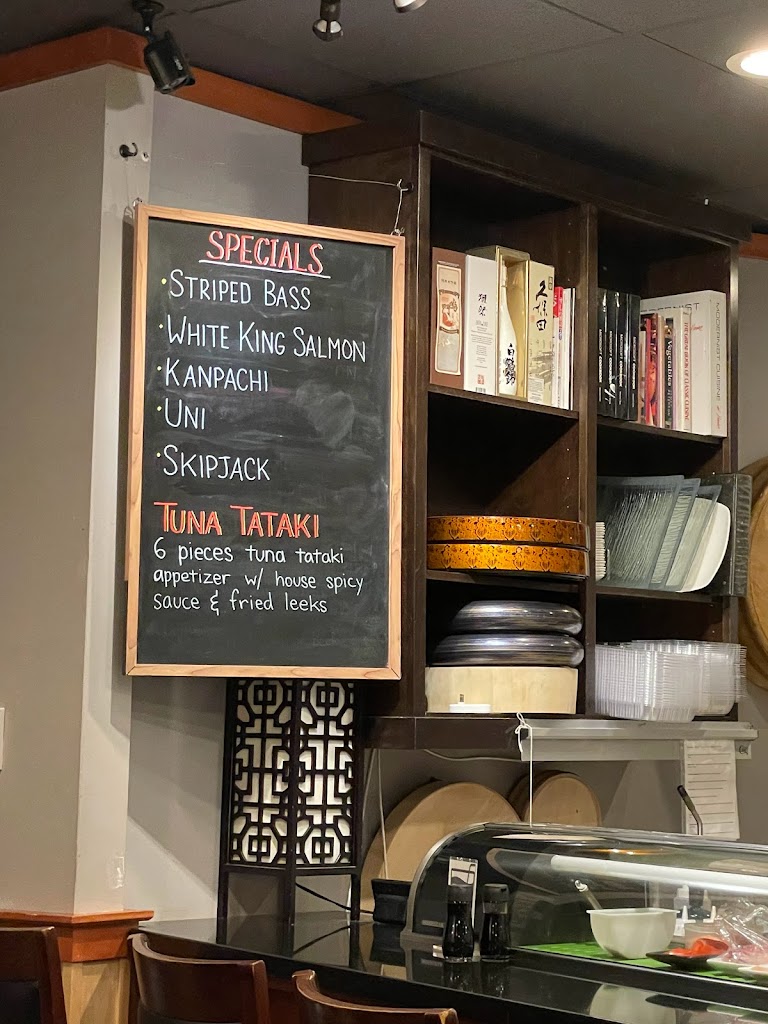 SPECIALS
· STRIPED BASS
· WHITE KING SALMON
· KANPACHI
· UNI
· SKIPJACK
TUNA TATAKI
6 pieces tuna tataki
appetizer w/ house spicy
sauce & fried leeks
久保田
MODERNIST CUISINE
Vegetables